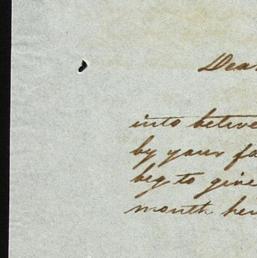 Dear
into betwe
by your fa
beg to give
month her